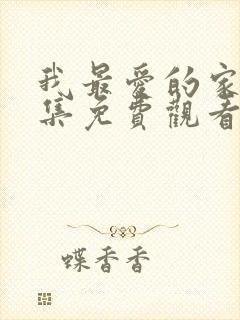 我最愛的家
集免費觀看
蝶香香